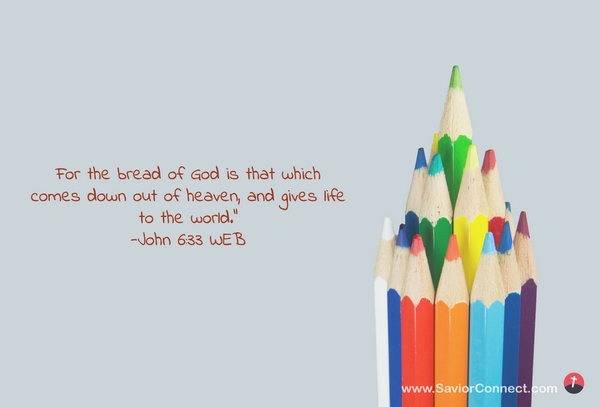 For the bread of God is that which
comes down out of heaven, and gives life
to the world."
-John 6:33 WEB
www.SaviorConnect.com